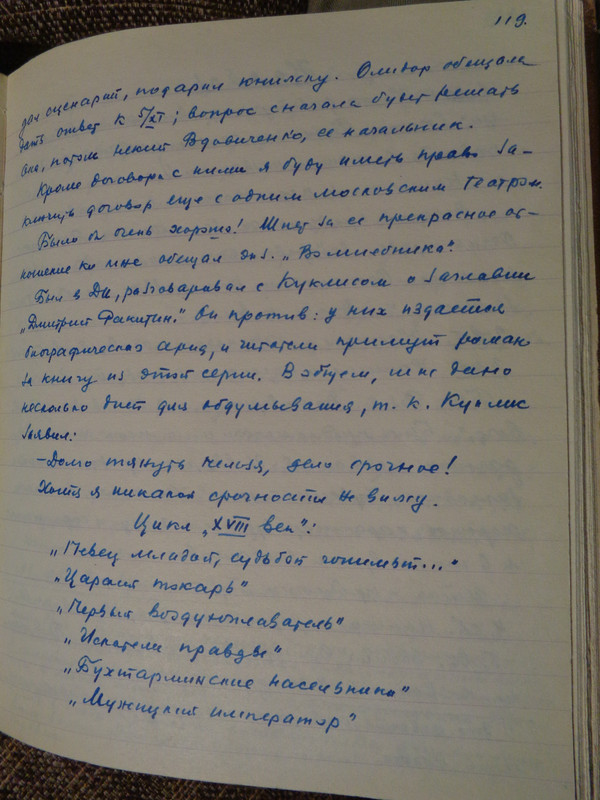 119.
дал сценарий, подарил книжку. Оливор обещала
дать ответ к 5/XI; вопрос сначала будет решать
она, потом некий Вдовиченко, её начальник.
Кроме договора с ними я буду иметь право за-
ключить договор еще с одним московским театром.
Было бы очень хорошо! Шпет за ее прекрасное от-
ношение ко мне обещал экз. „Волшебника“.
Был в ДИ, разговаривал с Куклисом о заглавии
„Дмитрий Ракитин.“ Он против: у них издаётся
биографическая серия, и читатели примут роман
за книгу из этой серии. В общем, мне дано
несколько дней для обдумывания, т. к. Куклис
заявил:
– Долго тянуть нельзя, дело срочное!
Хотя я никакой срочности не вижу.
Цикл „XVIII век“:
„Певец младой, судьбой гонимый...“
„Царский токарь“
„Первый воздухоплаватель“
„Искатели правды“
„Бухтарминские насельники“
„Мужицкий император“